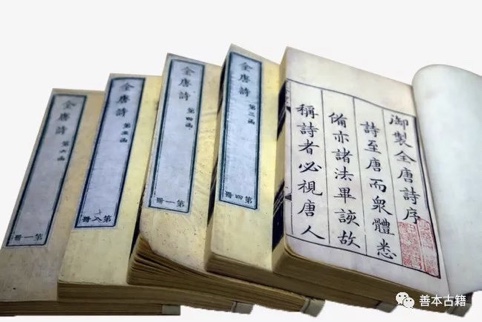 御製全唐詩序
詩至唐而衆體悉
備亦諸法畢該故
稱詩者必視唐人
全唐詩
第三函
第四冊
全唐詩
第四函
第一冊
全唐詩
第五函
第八冊
全唐詩
第六函
第一冊
善本古籍